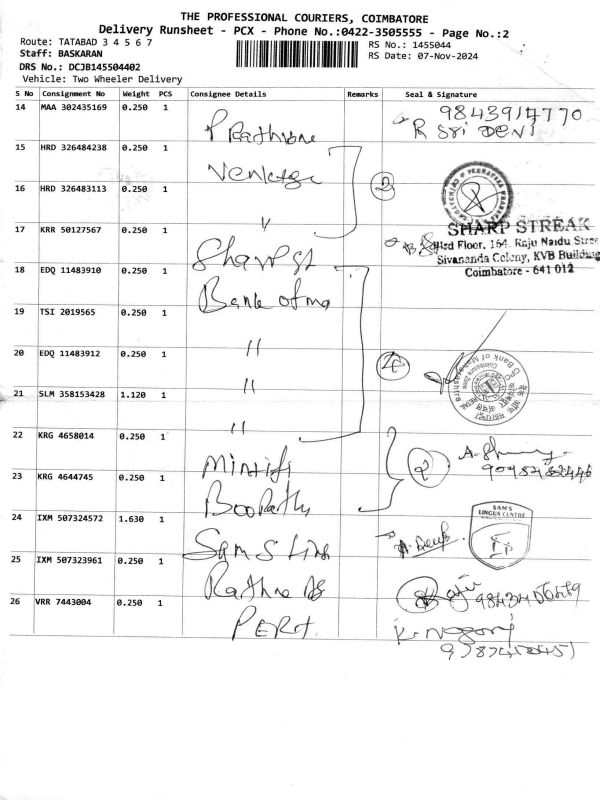 THE PROFESSIONAL COURIERS, COIMBATORE
Delivery Runsheet - PCX - Phone No.:0422-3505555 - Page No.:2
Route: TATABAD 3 4 5 6 7
RS No.: 1455044
Staff: BASKARAN
RS Date: 07-Nov-2024
DRS No.: DCJB145504402
Vehicle: Two Wheeler Delivery
S No Consignment No Weight PCS Consignee Details Remarks Seal & Signature
14 MAA 302435169 0.250 1
9843914770
R Sri DEVI
15 HRD 326484238 0.250 1
2
16 HRD 326483113 0.250 1
"
17 KRR 50127567 0.250 1
SHARP STREAK
IIIrd Floor, 164, Raju Naidu Street
Sivananda Colony, KVB Building
Coimbatore - 641 012
18 EDQ 11483910 0.250 1
Bank of ma
19 TSI 2019565 0.250 1
"
20 EDQ 11483912 0.250 1
"
Bank of Maharashtra
Coimbatore Zone
21 SLM 358153428 1.120 1
"
22 KRG 4658014 0.250 1
Mintifi
2
23 KRG 4644745 0.250 1
Boopathy
24 IXM 507324572 1.630 1
Sam S Ling
SAM'S
LINGUA CENTRE
25 IXM 507323961 0.250 1
26 VRR 7443004 0.250 1
PERT